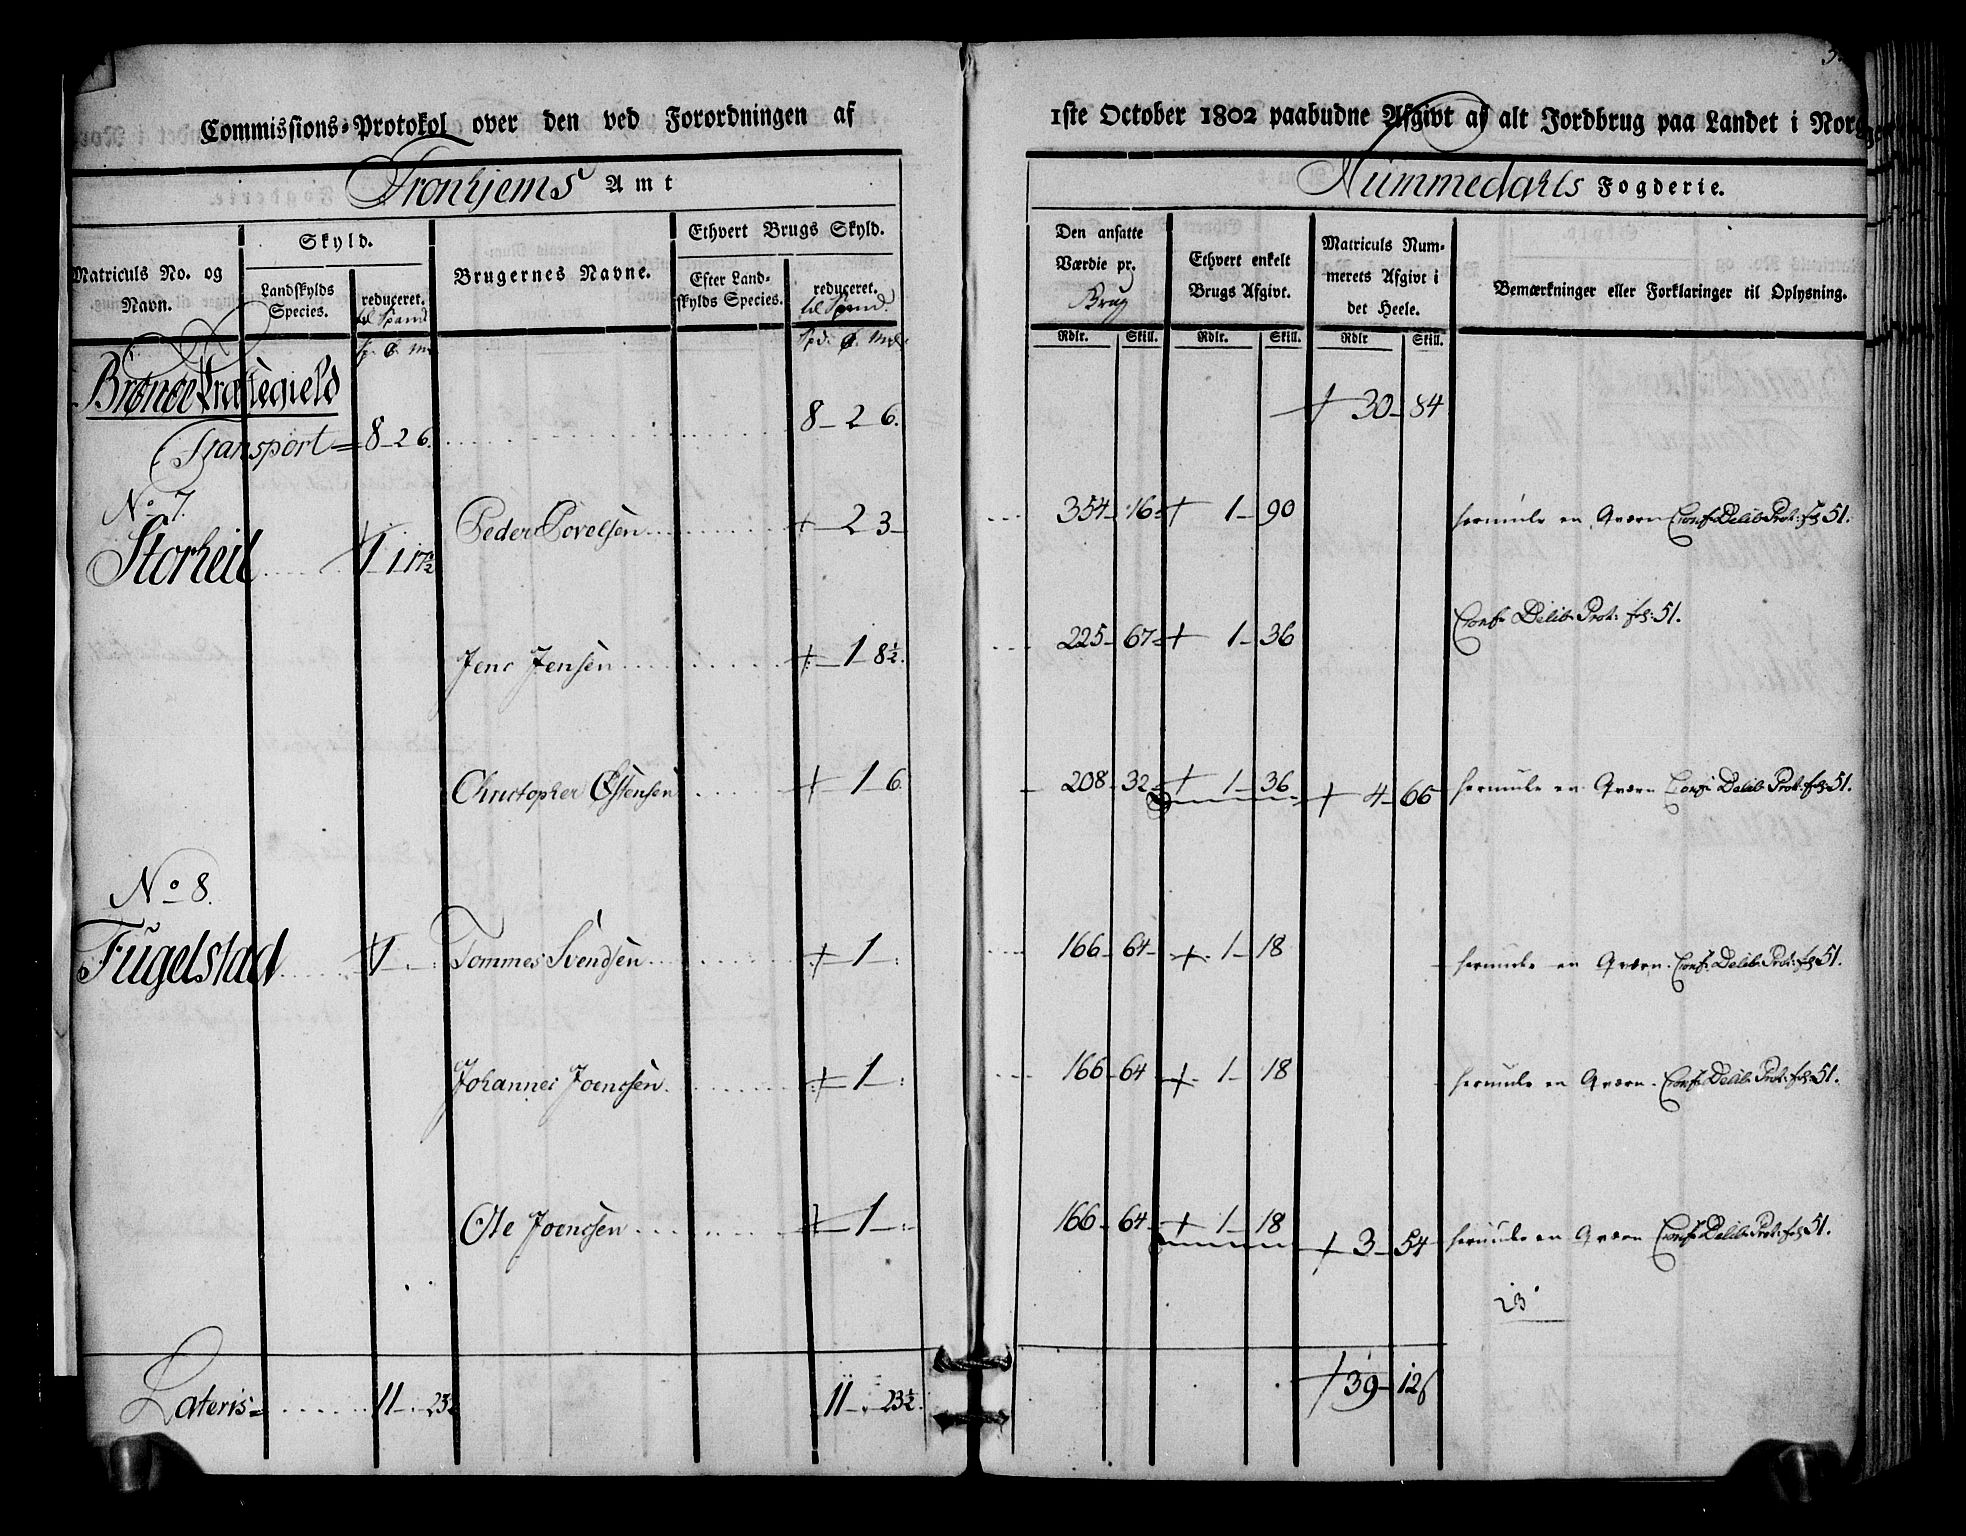 Commissions-Protokol over den ved Forordningen af 1ste October 1802 paabudne Afgivt af alt Jordbrug paa Landet i Norge
Tronhjems Amt
Nummedahls Fogderie.
Matriculs No. og Navn.
Skyld.
Landskylds Species.
reduceret. til Spand
Brugernes Navne.
Ethvert Brugs Skyld.
Efter Landskylds Species.
reduceret. til Spand.
Den ansatte Værdie pr. Brug
Ethvert enkelt Brugs Afgivt.
Matriculs Nummerets Afgivt i det Heele.
Bemærkninger eller Forklaringer til Oplysning.
Rdlr. Skill. Rdlr. Skill. Rdlr Skill.
Brønöe Præstegield
Transport 8 - 2 6. 8 - 2 6. 30 - 84
No 7.
Storheil 1 1 17½ Peder Povelsen 2 3 - 354 - 16 1 - 90 herunder en Qværn Conf. Delib. Prot. fol. 51.
Jens Jensen 1 8½. 225 - 67 1 - 36 Conf. Delib. Prot: fol: 51.
Christopher Østensen 1 6. 208 - 32 1 - 36 4 - 66 herunder en Qværn Conf. Delib. Prot. fol. 51.
No 8.
Fugelstad 1 - Tommes Svendsen 1 - 166 - 64 1 - 18 herunder en Qværn. Conf. Delib. Prot. fol. 51.
Johannes Joensen 1 - 166 - 64 1 - 18 herunder en Qværn. Conf. Delib. Prot. fol. 51.
Ole Joensen 1 - 166 - 64 1 - 18 3 - 54 herunder en Qværn Conf. Delib. Prot. fol. 51.
Lateris 11 - 23½ 11 - 23½. 39 - 12